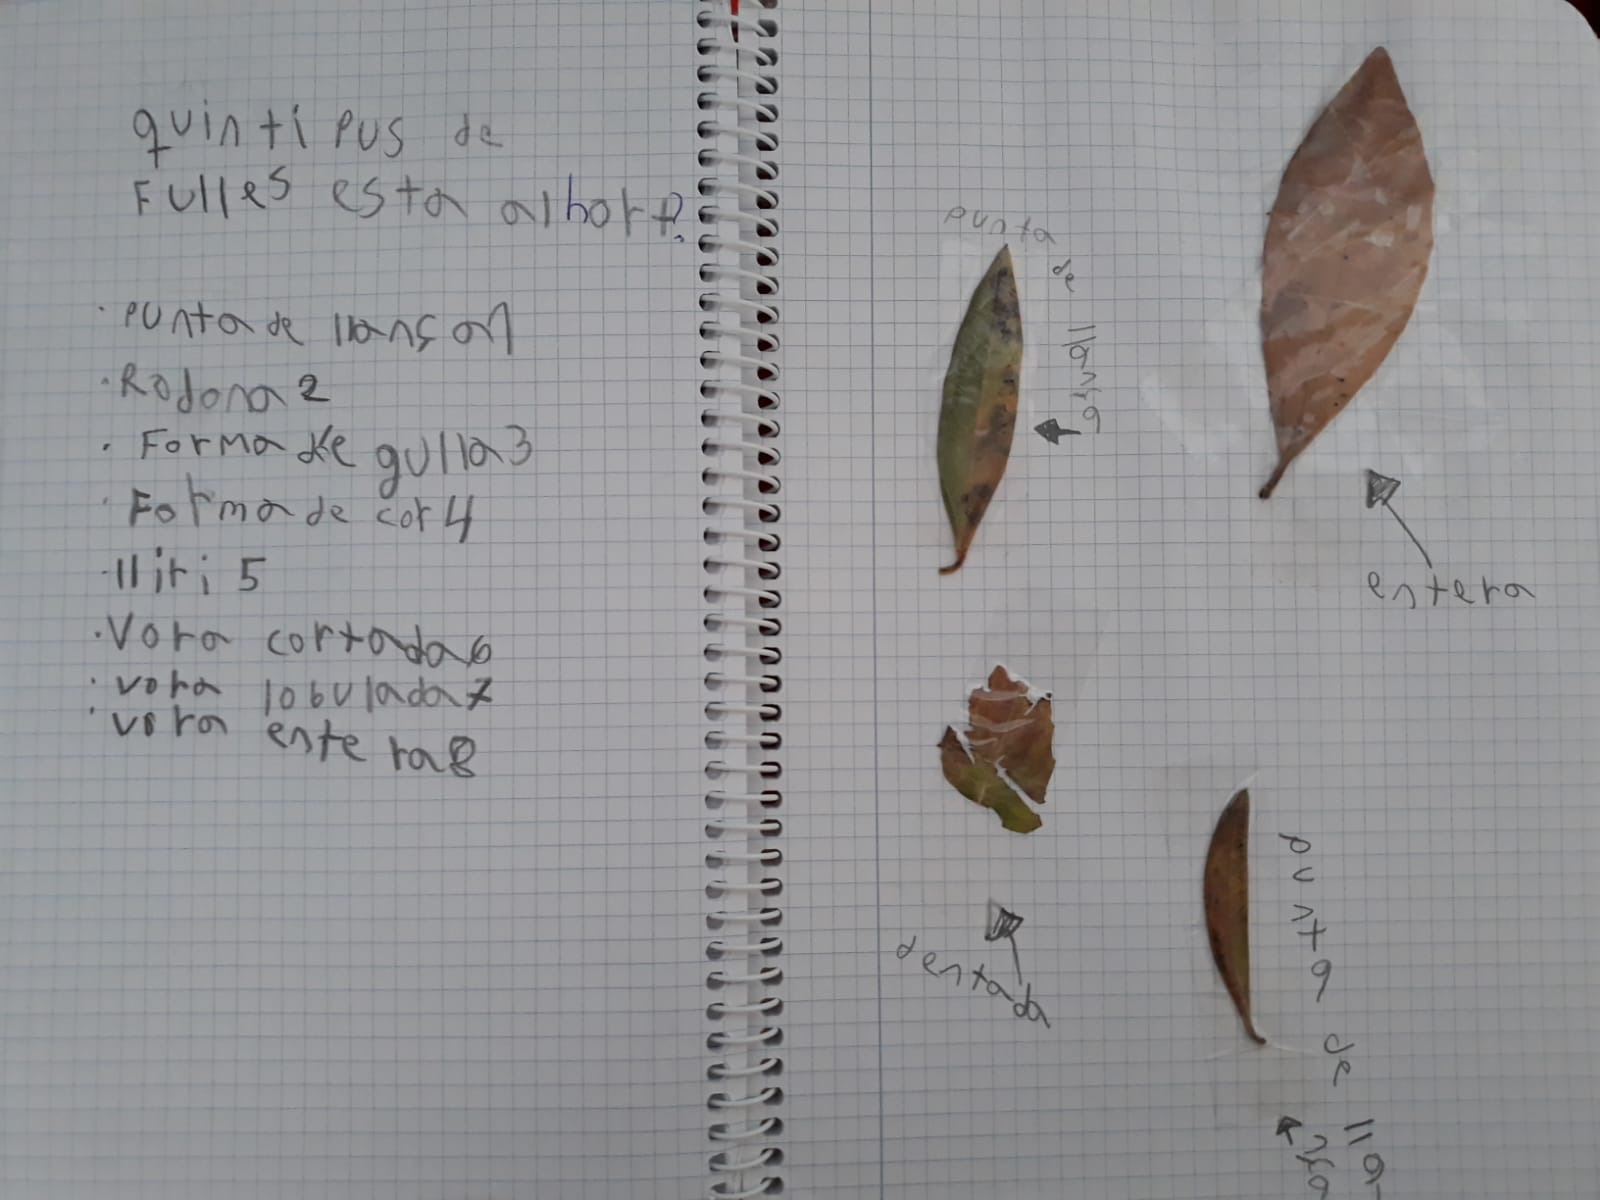 quin tipus de
Fulles esta alhort?
· punta de llansa 1
· Rodona 2
· Forma de gulla 3
· Forma de cor 4
· lliri 5
· Vora cortada 6
· vora lobulada 7
· vora entera 8
punta
de
llansa
entera
dentada
punta de lla
nsa